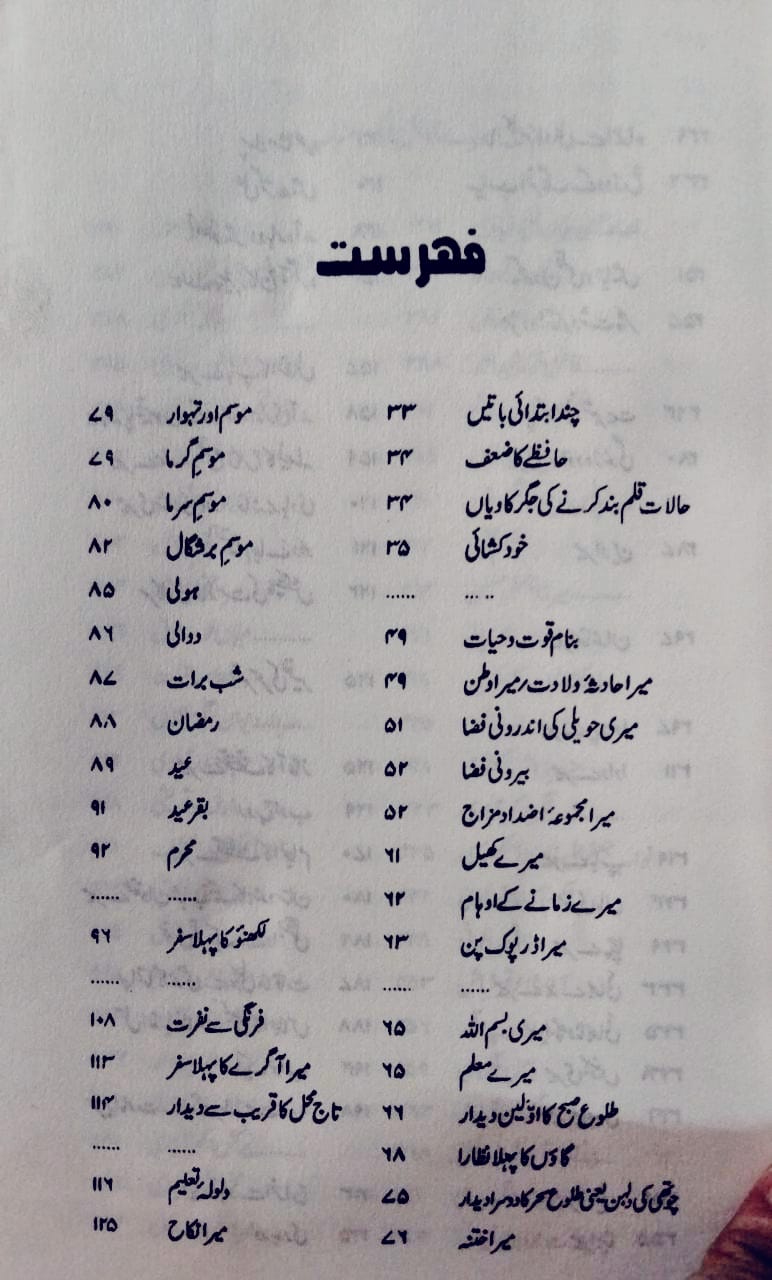 فہرست
چند ابتدائی باتیں ۳۳
حافظے کا ضعف ۳۴
حالات قلم بند کرنے کی جگر کاویاں ۳۴
خود کشائی ۳۵
..... ......
بنام قوت و حیات ۴۹
میرا حادثۂ ولادت/میرا وطن ۴۹
میری حویلی کی اندرونی فضا ۵۱
بیرونی فضا ۵۲
میرا مجموعۂ اضداد مزاج ۵۲
میرے کھیل ۶۱
میرے زمانے کے اوہام ۶۲
میرا ڈرپوک پن ۶۳
...... ......
میری بسم اللہ ۶۵
میرے معلم ۶۵
طلوع صبح کا اوّلین دیدار ۶۶
گاؤں کا پہلا نظارا ۶۸
چوتھی کی دلہن یعنی طلوع سحر کا دوسرا دیدار ۷۵
میرا ختنہ ۷۶
موسم اور تہوار ۷۹
موسمِ گرما ۷۹
موسمِ سرما ۸۰
موسمِ برشگال ۸۲
ہولی ۸۵
دوالی ۸۶
شب برات ۸۷
رمضان ۸۸
عید ۸۹
بقر عید ۹۱
محرم ۹۲
...... ......
لکھنؤ کا پہلا سفر ۹۶
...... ......
فرنگی سے نفرت ۱۰۸
میرا آگرے کا پہلا سفر ۱۱۳
تاج محل کا قریب سے دیدار ۱۱۴
...... ......
ولولۂ تعلیم ۱۱۶
میرا نکاح ۱۲۵